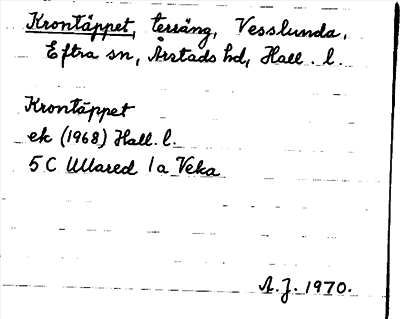 Krontäppet, terräng, Vesslunda,
Eftra sn, Årstads hd, Hall. l.
Krontäppet
ek (1968) Hall. l.
5 C Ullared 1a Veka
A.J. 1970.